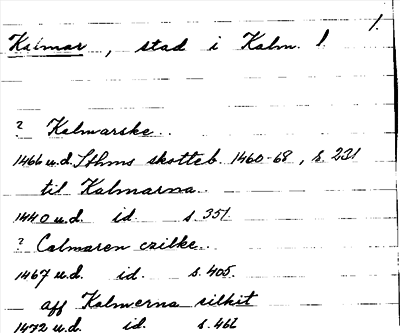 1.
Kalmar, stad i Kalm. l.
? Kalmarske..
1466 u.d. Sthms skotteb. 1460-68, s. 231
til Kalmarna..
1440 u.d. id. s. 351.
? Calmaren czilke..
1467 u.d. id. s. 405.
aff Kalmerna silkit
1472 u.d. id. s. 461